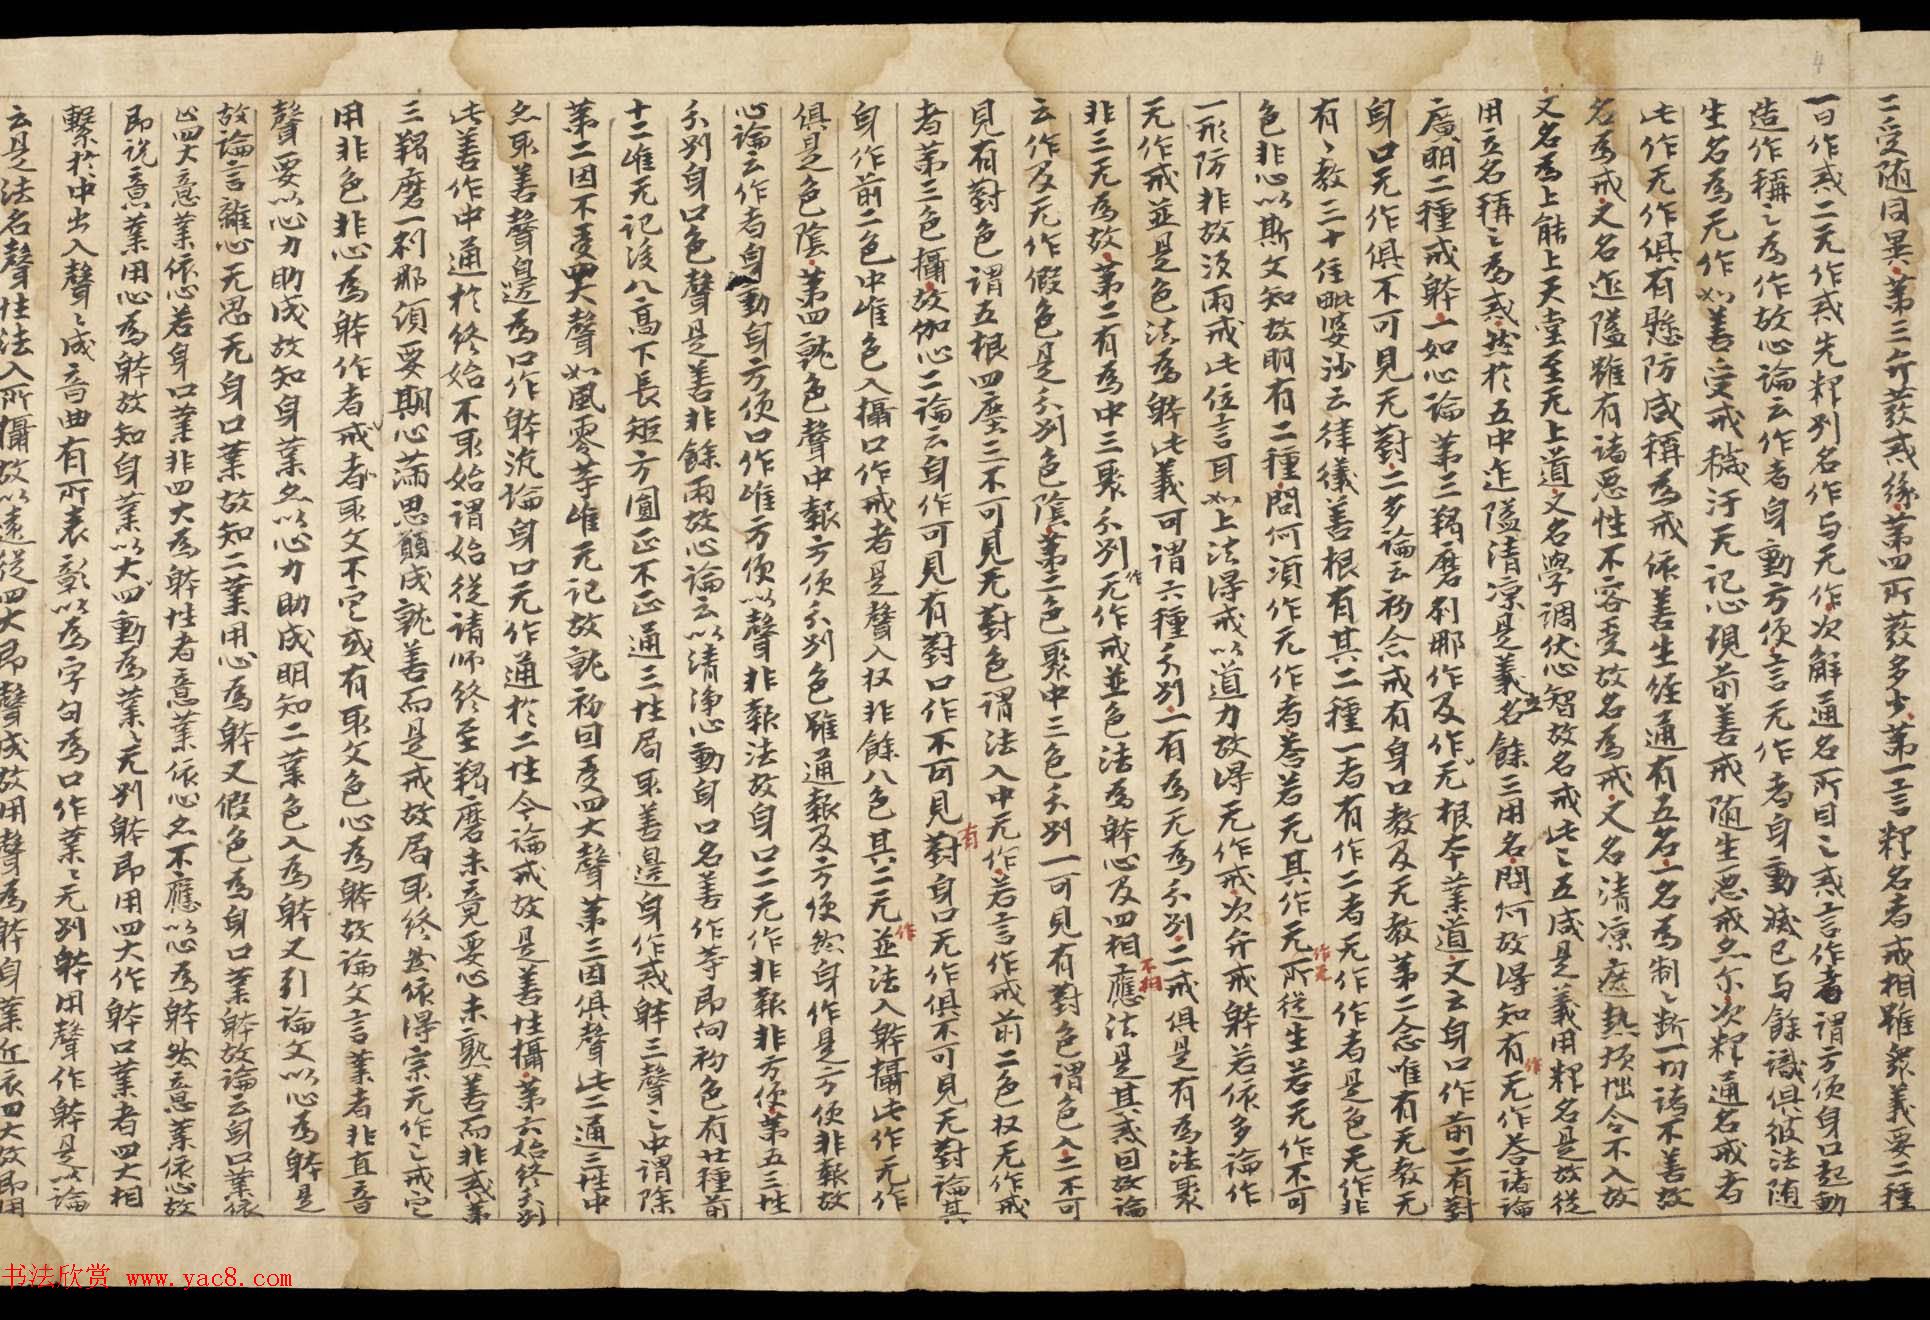 二受随同異第三斤發戒緣第四所發多少第一言釋名者戒相雖衆義要二種
一曰作戒二无作戒先釋別名作与无作次解通名所目之戒言作者謂方便身口起動
造作稱之為作故心論云作者身動方便言无作者身動滅已与餘識俱彼法随
生名為无作如善受戒穢汙无記心現前善戒随生惡戒亦尓次釋通名戒者
此作无作俱有懸防咸稱為戒依善生經通有五名一名為制制断一切諸不善故
名為戒又名迮隘雖有諸惡性不容受故名為戒又名清凉遮熱煩惱令不入故
又名為上能上天堂至无上道又名學調伏心智故名戒此之五咸是義用釋名是故從
用立名稱之為戒然於五中迮隘清凉是義立名餘三用名問何故得知有无作答諸論
廣明二種戒躰一如心論第三羯磨刹那作及作无根本業道又云身口作前二有對
身口无作俱不可見无對二多論云初念戒有身口教及无教第二念唯有无教无
有有教三十住毗婆沙云律儀善根有其二種一者有作二者无作作者是色无作非
色非心以斯文知故明有二種問何須作无作者答若无其作无所從生若无作不可
一形防非故須兩戒此位言耳如上法得戒以道力故得无作戒次弁戒躰若依多論作
无作戒並是色法為躰此義可謂六種分別一有為无為分別二戒俱是有為法聚
非三无為故第二有為中三聚分別无作戒並色法為躰心及四相應法是其戒因故論
云作及无作假色是分別色陰第二色聚中三色分別一可見有對色謂色入二不可
見有對色謂五根四塵三不可見无對色謂法入中无作若言作戒前二色收无作戒
者第三色攝故伽心二論云身作可見有對口作不可見對身口无作俱不可見无對論其
身作前二色中唯色入攝口作戒者是聲入收非餘八色其二无並法入躰攝此作无作
俱是色陰第四就色聲中報方便分別色雖通報及方便然身作是方便非報故
心論云作者身動身方便口作唯方便以聲非報法故身口二无作非報非方便第五三性
分別身口色聲是善非餘兩故心論云以清淨心動身口名善作等即向初色有廿種前
十二唯无記後八高下長短方圓正不正通三性局取善邊身作戒躰三聲之中謂除
第二因不受四大聲如風零等唯无記故就初回受四大聲第三因俱聲此二通三性中
亦取善聲自邊為口作躰汎論身口无作通於二性今論戒故是善性攝第六始終分別
此善作中通於終始不取始謂始從請師終至羯磨未竟要心未熟善而非戒第
三羯磨一刹那須要期心滿思願成就善而是戒故局取終然依得宗无作之戒它
用非色非心為躰作者戒者取文不定或有取文色心為躰故論文言業者非直音
聲要以心力助成故知身業亦以心力助成明知二業色入為躰又引論文以心為躰是
故論言離心无思无身口業故知二業用心為躰又假色為身口業躰故論云身口業依
止四大意業依心若身口業非四大為躰性者意業依心亦不應以心為躰然意業依心故
即說意業用心為躰故知身業以大四動為業業无別躰即用四大作躰口業者四大相
繫於中出入聲聲成音曲有所表彰以為字句為口作業業无別躰用聲作躰是以論
云是法名聲性法入所攝故以遠從四大即聲成故用聲為躰身業近依四大故即用
有
作
作
不相
作无
作
4
书法欣赏 www.yac8.com